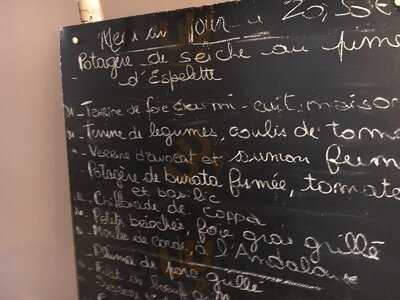 Menu du Jour 20,50€
Potagère de seiche au pime
d'Espelette
- Terrine de foie gras mi-cuit, maison
- Terrine de legumes, coulis de toma
- Verrine d'avocat et saumon fum
- Potagère de burata fumée, tomate
et basilic
de coppa
- Petits
foie gras grillé
- Moule de
à l'Andalou
- Pluma de grillé
- Filet de boeuf